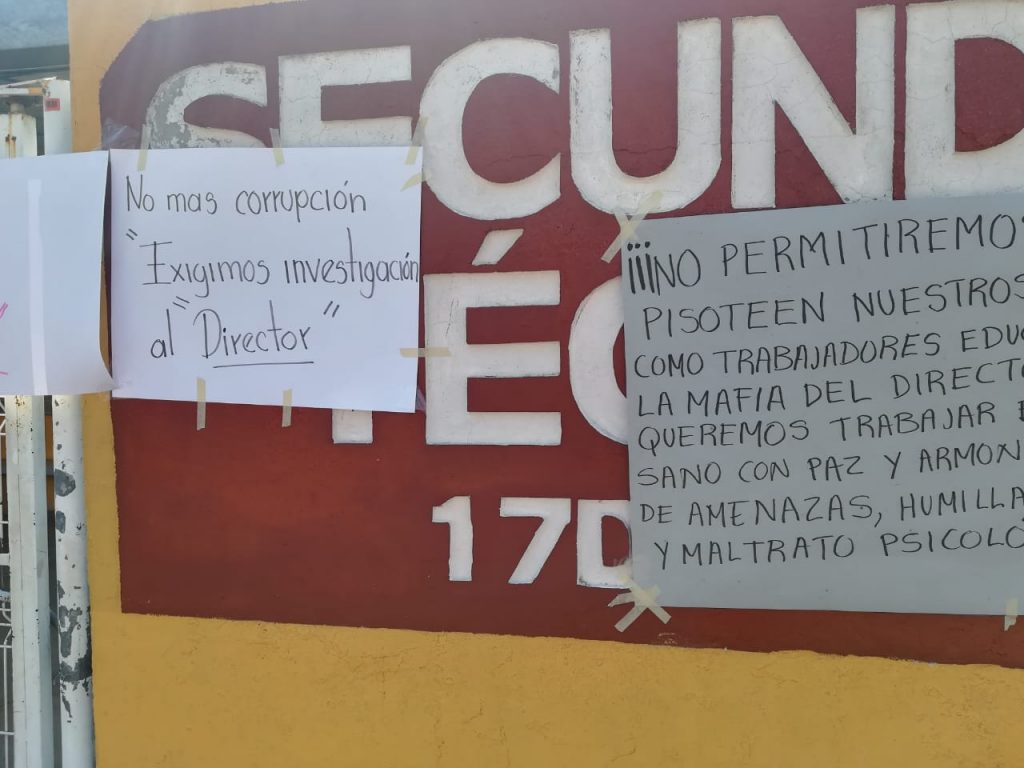 SECUND
TÉC
17D
No mas corrupción
"Exigimos investigación
al "Director"
¡¡¡NO PERMITIREMOS
PISOTEEN NUESTROS
COMO TRABAJADORES EDUC
LA MAFIA DEL DIRECTO
QUEREMOS TRABAJAR E
SANO CON PAZ Y ARMON
DE AMENAZAS, HUMILLA
Y MALTRATO PSICOLÓ